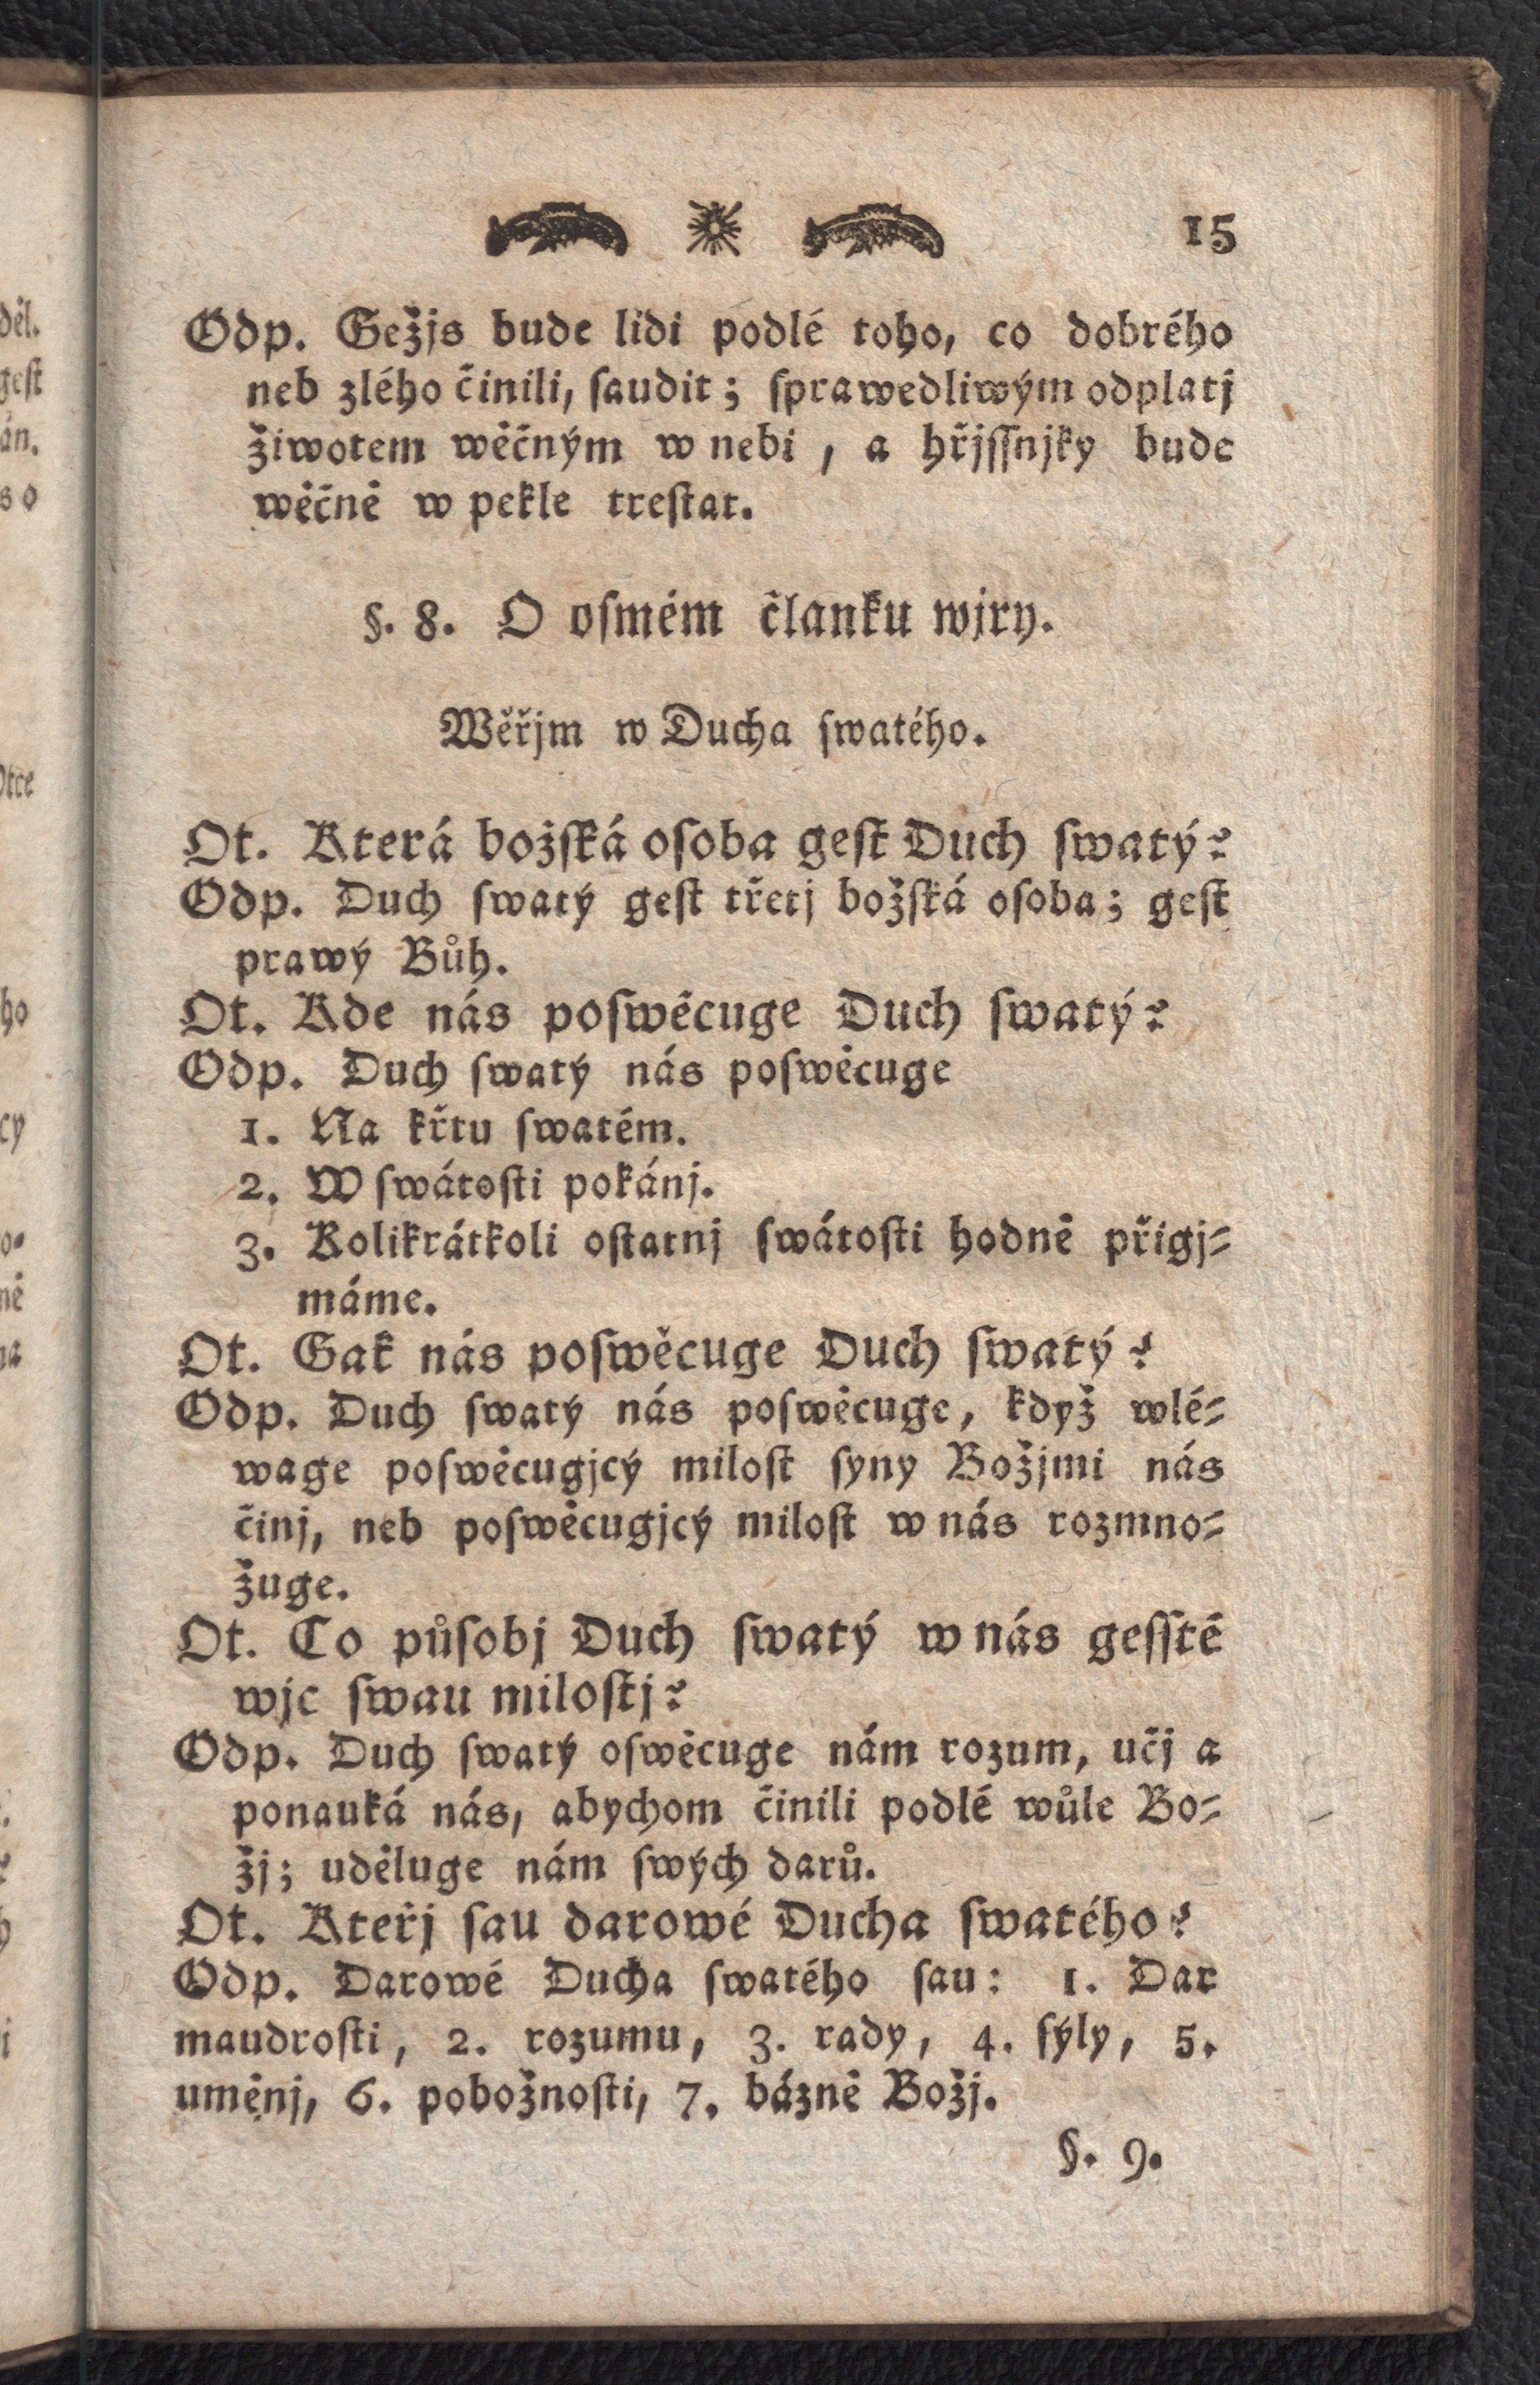 15
Odp. Gežjs bude lidi podlé toho, co dobrého
neb zlého činili, ſaudit; ſprawedliwým odplatj
žiwotem wěčným w nebi, a hřjſſnjky bude
wěčně w pekle treſtat.
§. 8. O oſmém članku wjry.
Wěřjm w Ducha ſwatého.
Ot. Která božſká oſoba geſt Duch ſwatý?
Odp. Duch ſwatý geſt třetj božſká oſoba; geſt
prawý Bůh.
Ot. Kde nás poſwěcuge Duch ſwatý?
Odp. Duch ſwatý nás poſwěcuge
1. Na křtu ſwatém.
2. W ſwátoſti pokánj.
3. Kolikrátkoli oſtatnj ſwátoſti hodně přigj⸗
máme.
Ot. Gak nás poſwěcuge Duch ſwatý?
Odp. Duch ſwatý nás poſwěcuge, když wlé⸗
wage poſwěcugjcý miloſt ſyny Božjmi nás
činj, neb poſwěcugjcý miloſt w nás rozmno⸗
žuge.
Ot. Co půſobj Duch ſwatý w nás geſſtě
wjc ſwau miloſtj?
Odp. Duch ſwatý oſwěcuge nám rozum, učj a
ponauká nás, abychom činili podlé wůle Bo⸗
žj; uděluge nám ſwých darů.
Ot. Kteřj ſau darowé Ducha ſwatého?
Odp. Darowé Ducha ſwatého ſau: 1. Dar
maudroſti, 2. rozumu, 3. rady, 4. ſýly, 5.
uměnj, 6. pobožnoſti, 7. bázně Božj.
§. 9.